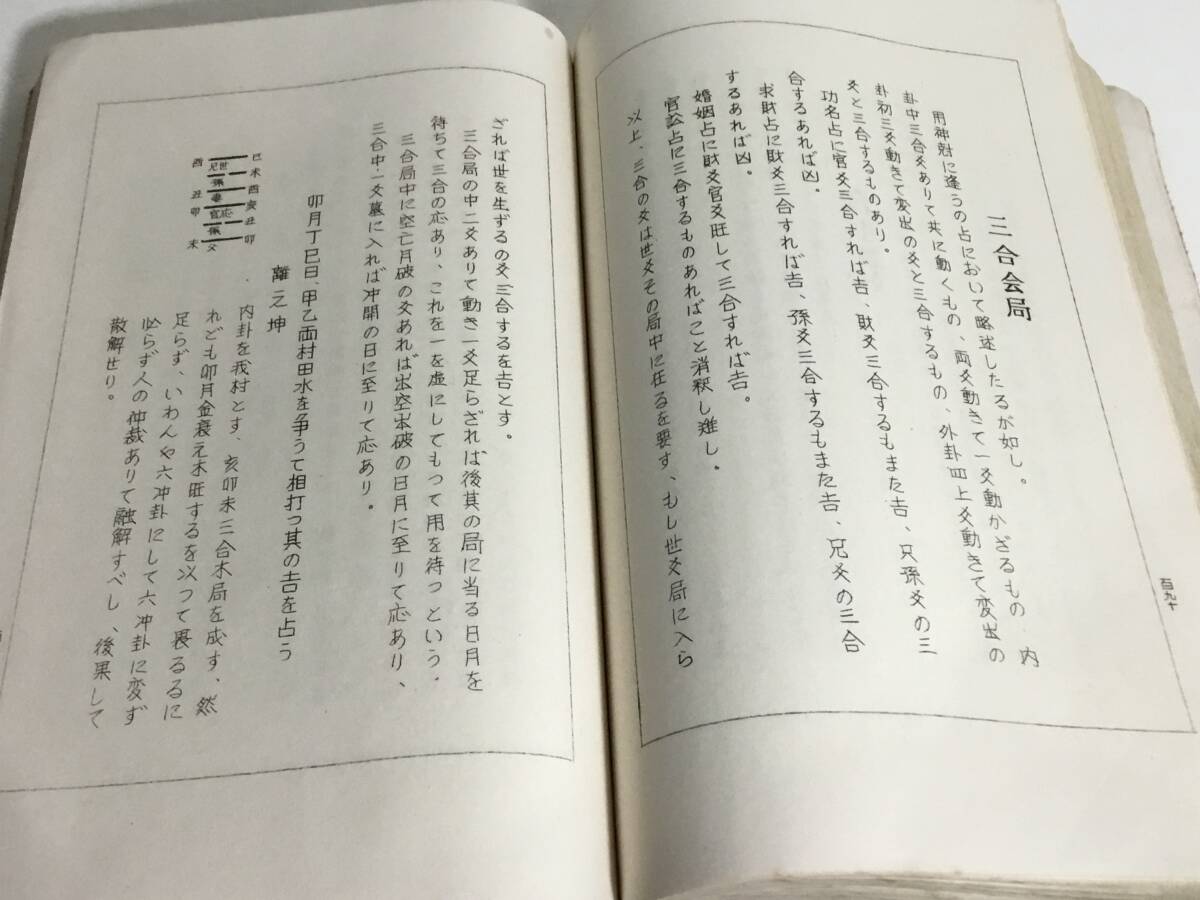 三合会局
用神尅に逢うの占において略述したるが如し。
卦中三合爻ありて共に動くもの、両爻動きて一爻動かざるもの、内
卦初三爻動きて変出の爻と三合するもの、外卦四上爻動きて変出の
爻と三合するものあり。
功名占に官爻三合すれば吉、財爻三合するもまた吉、只孫爻の三
合するあれば凶。
求財占に財爻三合すれば吉、孫爻三合するもまた吉、兄爻の三合
するあれば凶。
婚姻占に財爻官爻旺して三合すれば吉。
官訟占に三合するものあればこと消釈し難し。
以上、三合の爻は世爻その局中に在るを要す、もし世爻局に入ら
百九十
ざれば世を生ずるの爻三合するを吉とす。
三合局の中二爻ありて動き一爻足らざれば後其の局に当る日月を
待ちて三合の応あり、これを一を虚にしてもつて用を待つという。
三合局中に空亡月破の爻あれば出空実破の日月に至りて応あり、
三合中一爻墓に入れば冲開の日に至りて応あり。
卯月丁巳日、甲乙両村田水を争うて相打つ其の吉を占う
離之坤
酉 兄世 巳
孫 未
丑 妻 酉
卯 官応 亥
孫 丑
未 父 卯
内卦を我村とす、亥卯未三合木局を成す、然
れども卯月金衰え木旺するを以つて畏るるに
足らず、いわんや六冲卦にして六冲卦に変ず
必らず人の仲裁ありて融解すべし、後果して
散解せり。